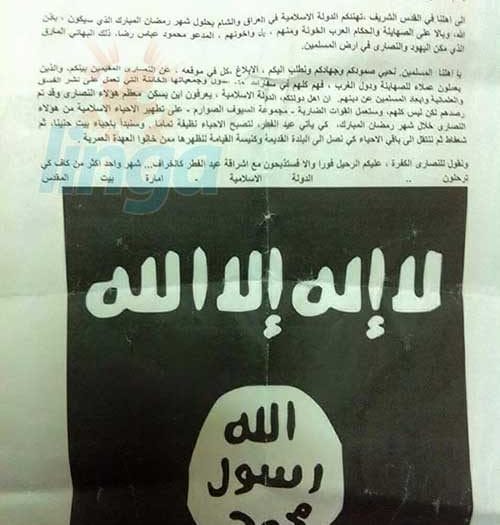 الى اهلنا في القدس الشريف، تهنئكم الدولة الاسلامية في العراق والشام بحلول شهر رمضان المبارك الذي سيكون ، باذن
الله، وبالا على الصهاينة والحكام العرب الخونة ومنهم ، بل واخونهم ، المدعو محمود عباس رضا، ذلك البهائي المارق
الذي مكن اليهود والنصارى في ارض المسلمين.
يا اهلنا المسلمين. نحيي صمودكم وجهادكم ونطلب اليكم ، الابلاغ ،كل في موقعه ، عن النصارى المقيمين بينكم، والذين
يعملون عملاء للصهاينة ودول الغرب ، فهم كلهم في وجمعياتها الخائنة التي تعمل على نشر الفسق
والعلمانية وابعاد المسلمين عن دينهم. ان اهل دولتكم، الدولة الاسلامية ، يعرفون اين يسكن معظم هؤلاء النصارى وقد تم
رصدهم لكن ليس كلهم، وستعمل القوات الضاربة - مجموعة السيوف الصوارم - على تطهير الاحياء الاسلامية من هؤلاء
النصارى خلال شهر رمضان المبارك، كي يأتي عيد الفطر، لتصبح الاحياء نظيفة تماما . وسنبدأ باحياء بيت حنينا، ثم
شعفاط ثم ننتقل الى باقي الاحياء كي نصل الى البلدة القديمة وكنيسة القيامة لنطهرها ممن خانوا العهدة العمرية
ونقول للنصارى الكفرة ، عليكم الرحيل فورا والا فستذبحون مع اشراقة عيد الفطر كالخراف... شهر واحد اكثر من كاف كي
ترحلون .. الدولة الاسلامية . امارة بيت المقدس
linga
لا إله إلا الله
الله
رسول
محمد